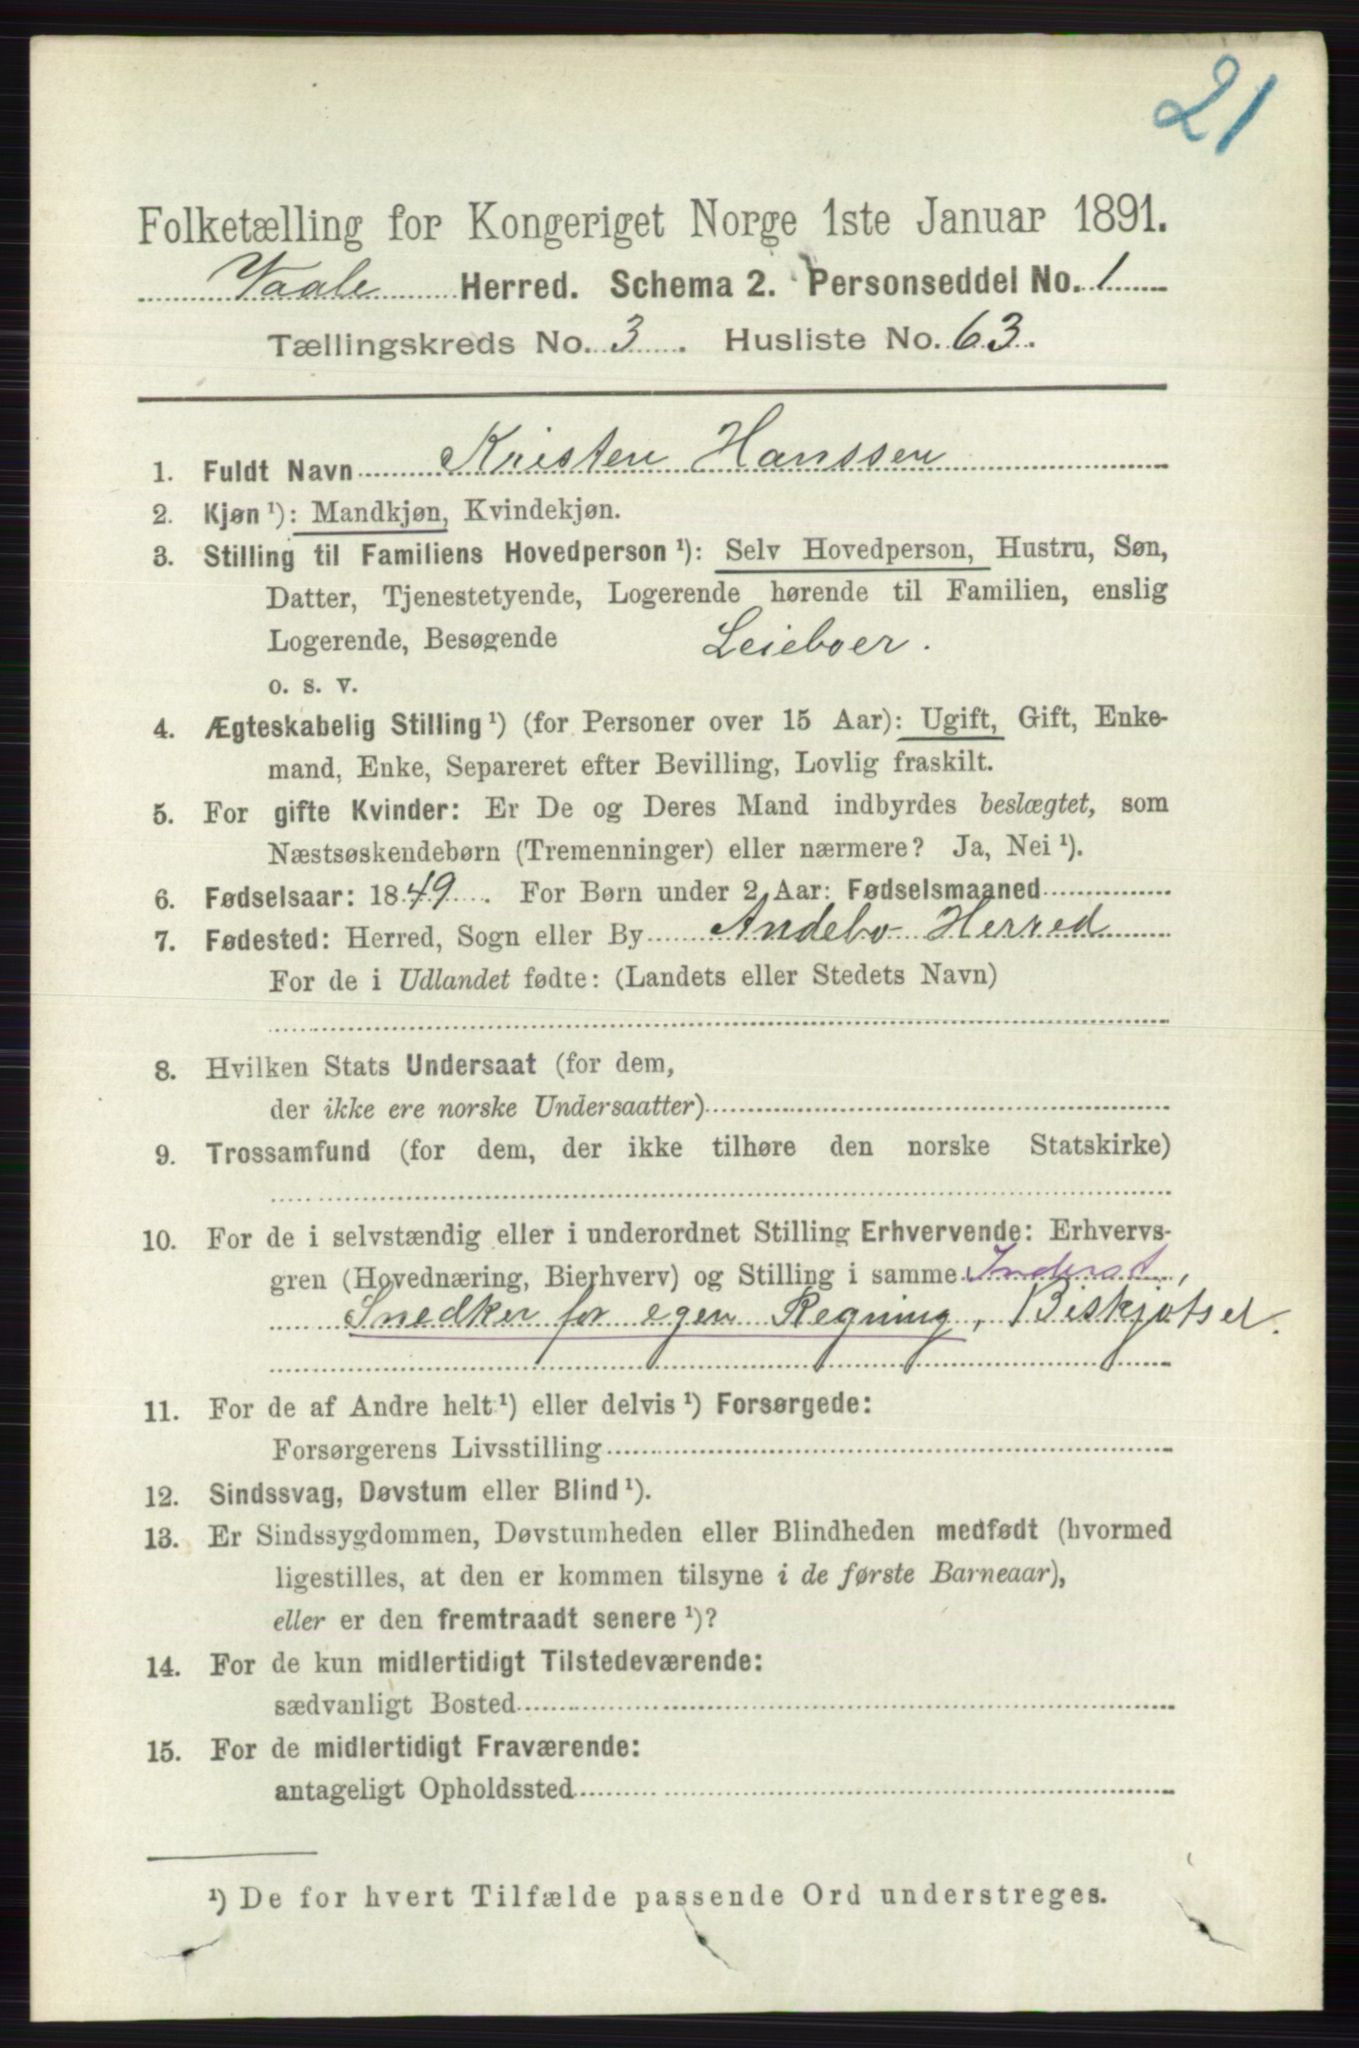 21
Folketælling for Kongeriget Norge 1ste Januar 1891.
Vaale Herred. Schema 2. Personseddel No. 1
Tællingskreds No. 3. Husliste No. 63.
1. Fuldt Navn Kristen Hanssen
2. Kjøn ¹): Mandkjøn, Kvindekjøn.
3. Stilling til Familiens Hovedperson ¹): Selv Hovedperson, Hustru, Søn,
Datter, Tjenestetyende, Logerende hørende til Familien, enslig
Logerende, Besøgende Leieboer.
o. s. v.
4. Ægteskabelig Stilling ¹) (for Personer over 15 Aar): Ugift, Gift, Enke-
mand, Enke, Separeret efter Bevilling, Lovlig fraskilt.
5. For gifte Kvinder: Er De og Deres Mand indbyrdes beslægtet, som
Næstsøskendebørn (Tremenninger) eller nærmere? Ja, Nei ¹).
6. Fødselsaar: 1849. For Børn under 2 Aar: Fødselsmaaned
7. Fødested: Herred, Sogn eller By Andebo Herred
For de i Udlandet fødte: (Landets eller Stedets Navn)
8. Hvilken Stats Undersaat (for dem,
der ikke ere norske Undersaatter)
9. Trossamfund (for dem, der ikke tilhøre den norske Statskirke)
10. For de i selvstændig eller i underordnet Stilling Erhvervende: Erhvervs-
gren (Hovednæring, Bierhverv) og Stilling i samme Inderst,
Snedker for egen Regning, Biskjøtsel.
11. For de af Andre helt ¹) eller delvis ¹) Forsørgede:
Forsørgerens Livsstilling
12. Sindssvag, Døvstum eller Blind ¹).
13. Er Sindssygdommen, Døvstumheden eller Blindheden medfødt (hvormed
ligestilles, at den er kommen tilsyne i de første Barneaar),
eller er den fremtraadt senere ¹)?
14. For de kun midlertidigt Tilstedeværende:
sædvanligt Bosted
15. For de midlertidigt Fraværende:
antageligt Opholdssted
¹) De for hvert Tilfælde passende Ord understreges.